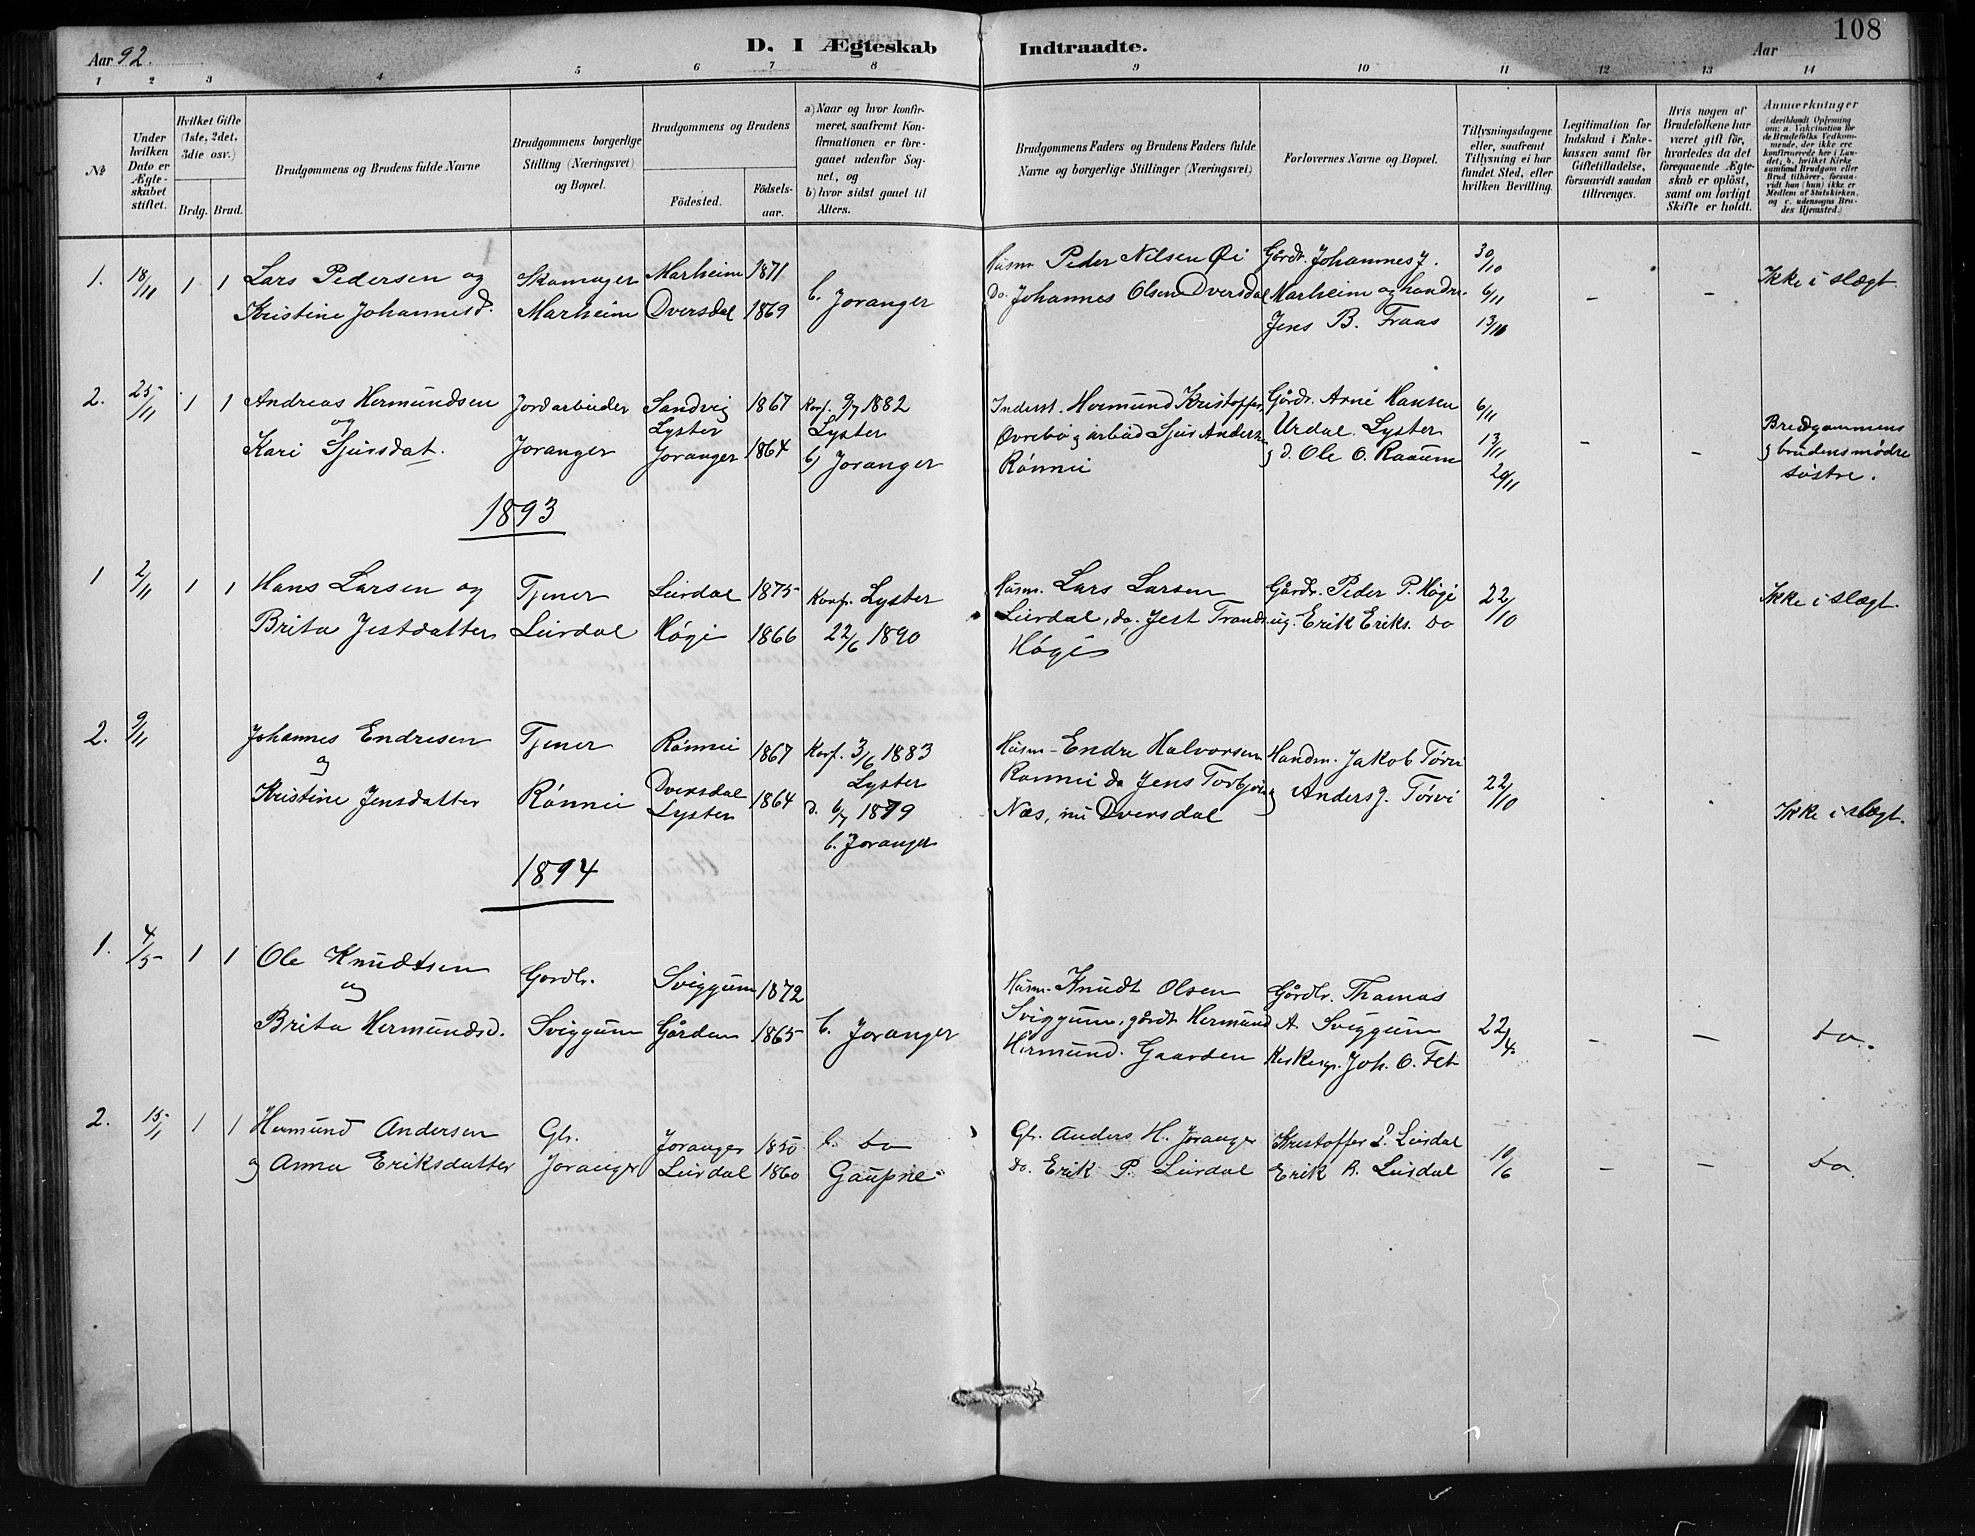 108
Aar 92.
D. I Ægteskab Indtraadte.
Aar
1 2 3 4 5 6 7 8 9 10 11 12 13 14
No
Under hvilken Dato er Ægteskabet stiftet.
Hvilket Gifte (1ste, 2det, 3die osv.)
Brdg. Brud.
Brudgommens og Brudens fulde Navne
Brudgommens borgerlige Stilling (Næringsvei) og Bopæl.
Brudgommens og Brudens
Fødested.
Fødsels-aar.
a) Naar og hvor konfirmeret, saafremt Konfirmationen er foregaaet udenfor Sognet, og
b) hvor sidst gaaet til Alters.
Brudgommens Faders og Brudens Faders fulde Navne og borgerlige Stillinger (Næringsvei)
Forlovernes Navne og Bopæl.
Tillysningsdagene eller, saafremt Tillysning ei har fundet Sted, efter hvilken Bevilling.
Legitimation for Indskud i Enkekassen samt for Giftetilladelse, forsaavidt saadan tiltrænges.
Hvis nogen af Brudefolkene har været gift før, hvorledes da det foregaaende Ægteskab er opløst, samt om lovligt Skifte er holdt.
Anmærkninger (deriblandt Oplysning om: a. Vakcination for de Brudefolks Vedkommende, der ikke ere konfirmerede her i Landet; b. hvilket Kirkesamfund Brudgom eller Brud tilhører, forsaavidt han (hun) ikke er Medlem af Statskirken, og c. udensogns Brudes Hjemsted.)
1. 18/11 1 1 Lars Pedersen og Skomager Marheim 1871 Husm Peder Nilsen Øi Gårdr. Johannes J. 30/10
Kristine Johannesd. Marheim Dversdal 1869 b. Joranger Do. Johannes Olsen Dversdal Marheim og handr. 6/11 – – Ikke i slægt
Jens B. Fraas 13/11
2. 25/11 1 1 Andreas Hermundsen Jordarbeider Sandvig 1867 Konf. 9/7 1882 Inderst. Hermund Kristoffer. Gårdr. Arne Hansen 6/11
og Lyster Lyster Øvrebø g arbeid Sjur Anders. Urdal. Lyster 13/11 – – Brudgommens
Kari Sjursdat. Joranger Joranger 1864 b) Joranger Rönnei g d. Ole O. Raaum 20/11 g brudens mødre søstre.
1893
1 2/11 1 1 Hans Larsen og Tjener Leirdal 1875 Konf. Lyster Husm. Lars Larsen Gårdr. Peder P. Høgi 22/10 Ikke i slægt.
Brita Jestdatter Leirdal Høgi 1866 22/6 1890 Leirdal, do. Jest Tronds. ug. Erik Eriks. Do
Høgi
2. 9/11 Johannes Endresen Tjener Rönnei 1867 Konf. 3/6 1883 Husm- Endre Halvorsen Handm. Jakob Tørvi
og Dversdal Lyster Ronnei do Jens Torbjörn g Anders J. Tørvi 22/10
Kristine Jensdatter Rönnei Lyster 1864 d. 6/7 1879 Næs, nu Dversdal Ikke i slægt.
b. Joranger
1894
1. 4/5 1 1 Ole Knudtsen Gordbr. Sviggum 1872 Husm. Knudt Olsen Gårdbr. Thomas
og Sviggum, gårdr Hermund A. Sviggum 22/4 – – Do.
Brita Hermundsd. Sviggum Gården 1865 b. Joranger Hermund. Gaarden Joh. O. Fet
2. 15/ 1 1 Hermund Andersen Gbr. Joranger 1850 b. Do Gbr. Anders H. Joranger Kristoffer L. Leirdal
og Anna Eriksdatter Joranger Leirdal 1860 Gaupne Do. Erik P. Leirdal Erik R. Leirdal 10/6 – – Do.